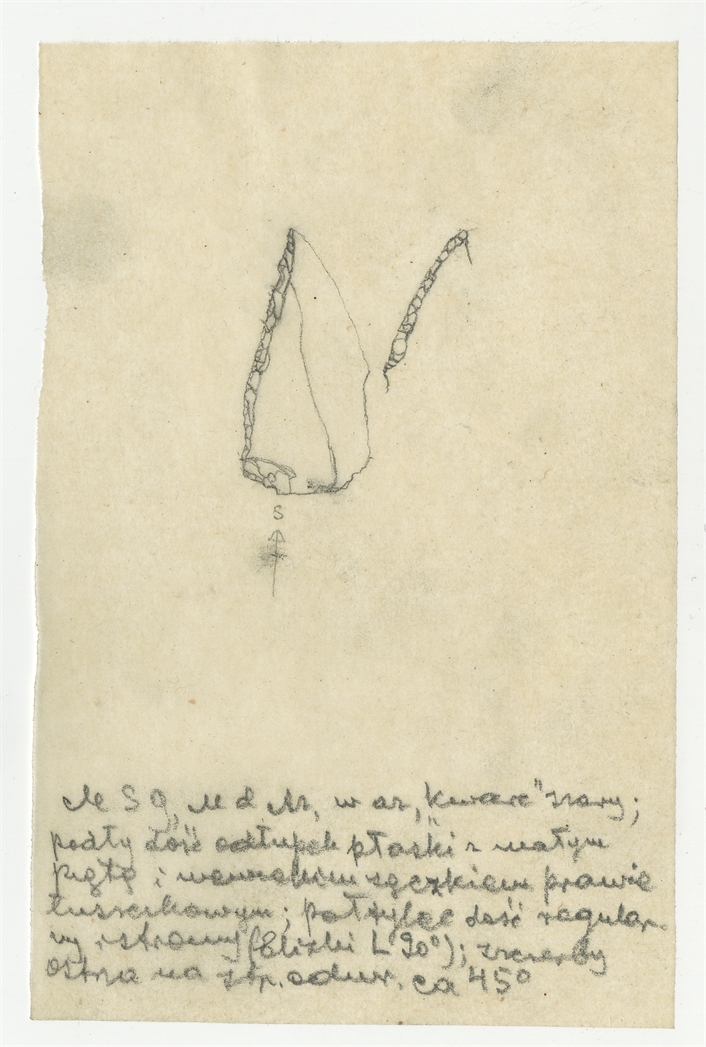 S
M S 9, M d Ar, w ar, "kwarc" szary;
podły dość odłupek płaski z małym
piętą i wewnętrznym sęczkiem prawie
łuszczkowym; półtylec dość regular-
ny i stromy (bliski L 90°); szczerby
ostrza na str. odwr. ca 45°